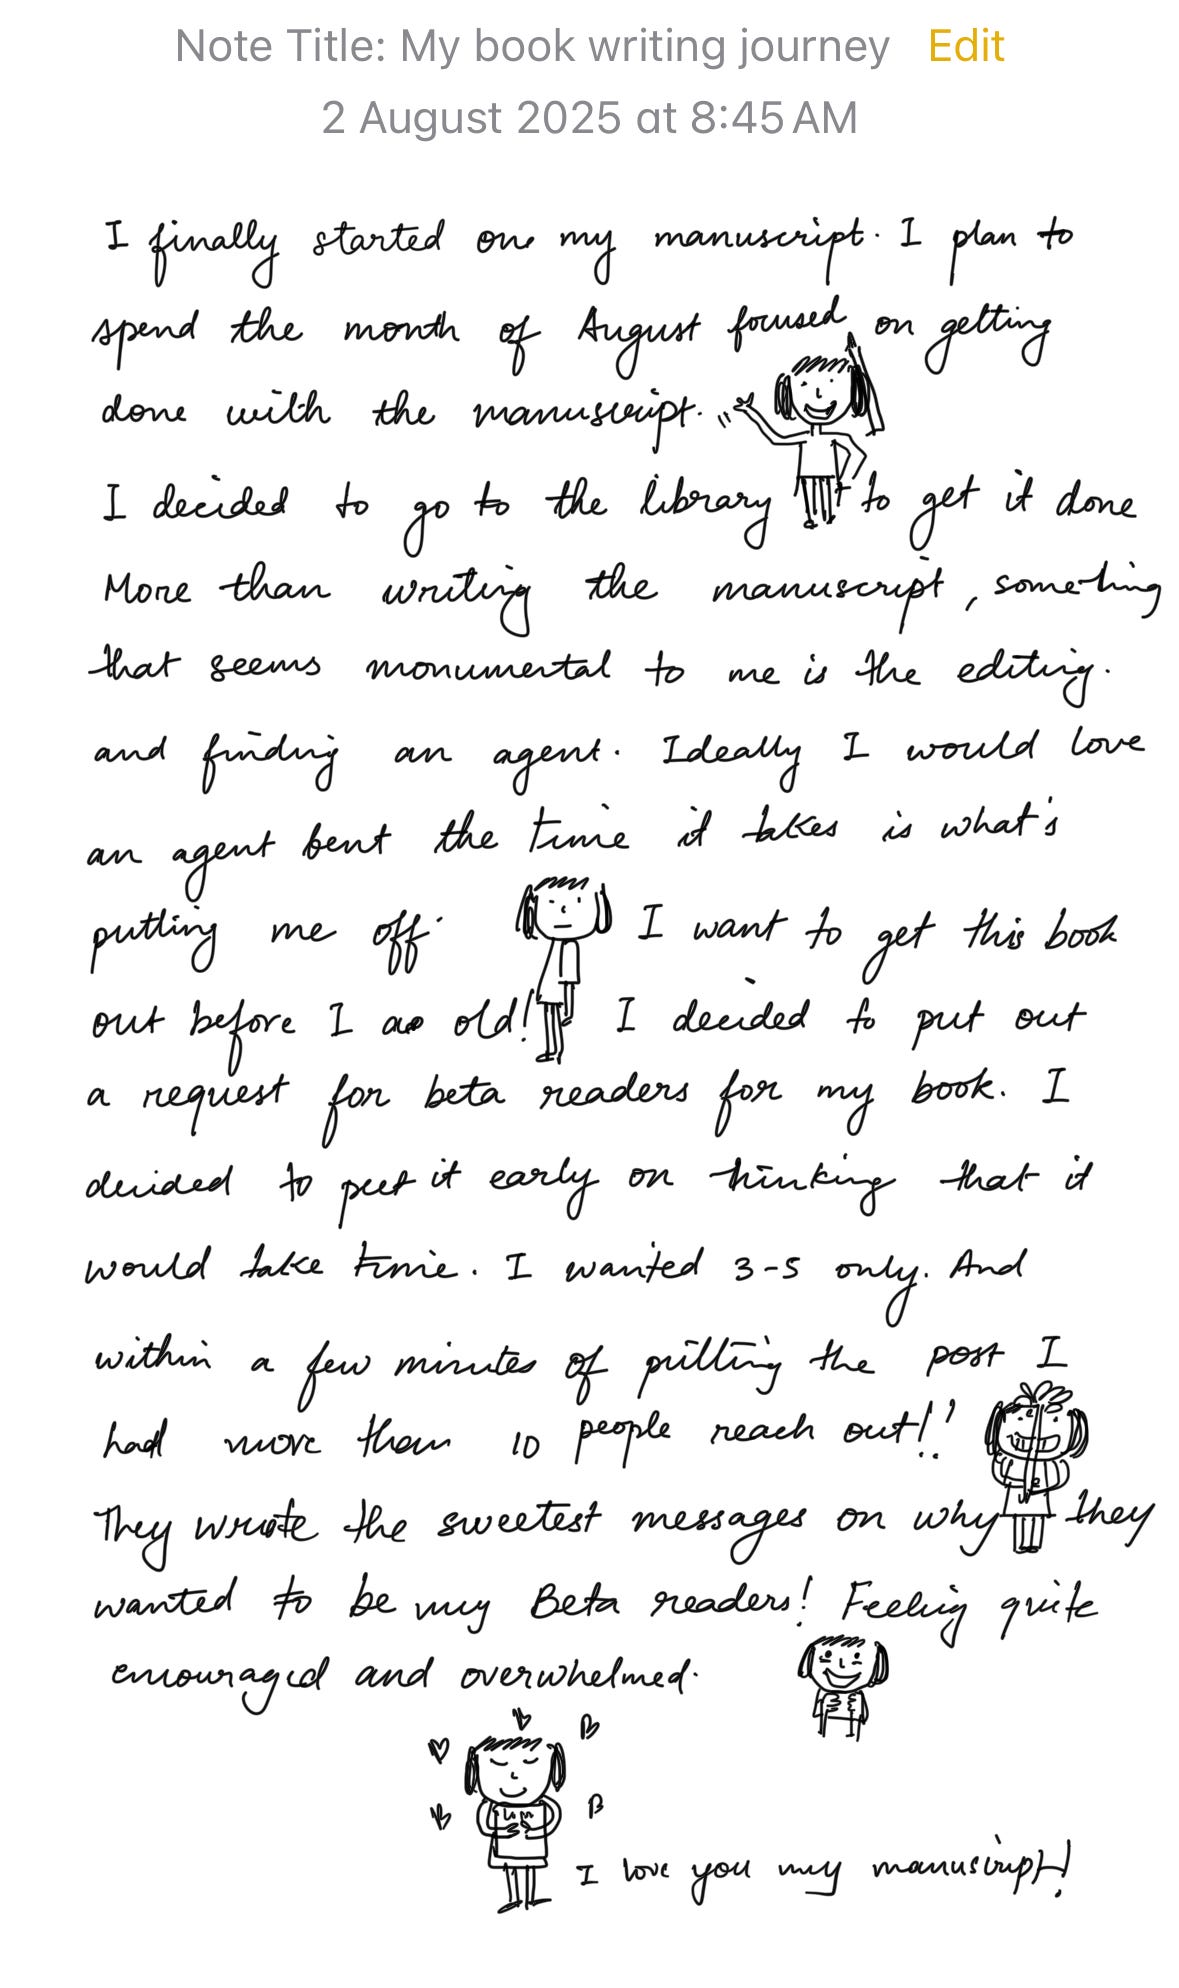 Note Title: My book writing journey Edit
2 August 2025 at 8:45 AM
I finally started on my manuscript. I plan to
spend the month of August focused on getting
done with the manuscript.
I decided to go to the library to get it done
More than writing the manuscript, something
that seems monumental to me is the editing.
and finding an agent. Ideally I would love
an agent bent the time it takes is what's
putting me off. I want to get this book
out before I am old! I decided to put out
a request for beta readers for my book. I
decided to put it early on thinking that it
would take time. I wanted 3-5 only. And
within a few minutes of putting the post I
had more than 10 people reach out!!
They wrote the sweetest messages on why they
wanted to be my Beta readers! Feeling quite
encouraged and overwhelmed.
I love you my manuscript!